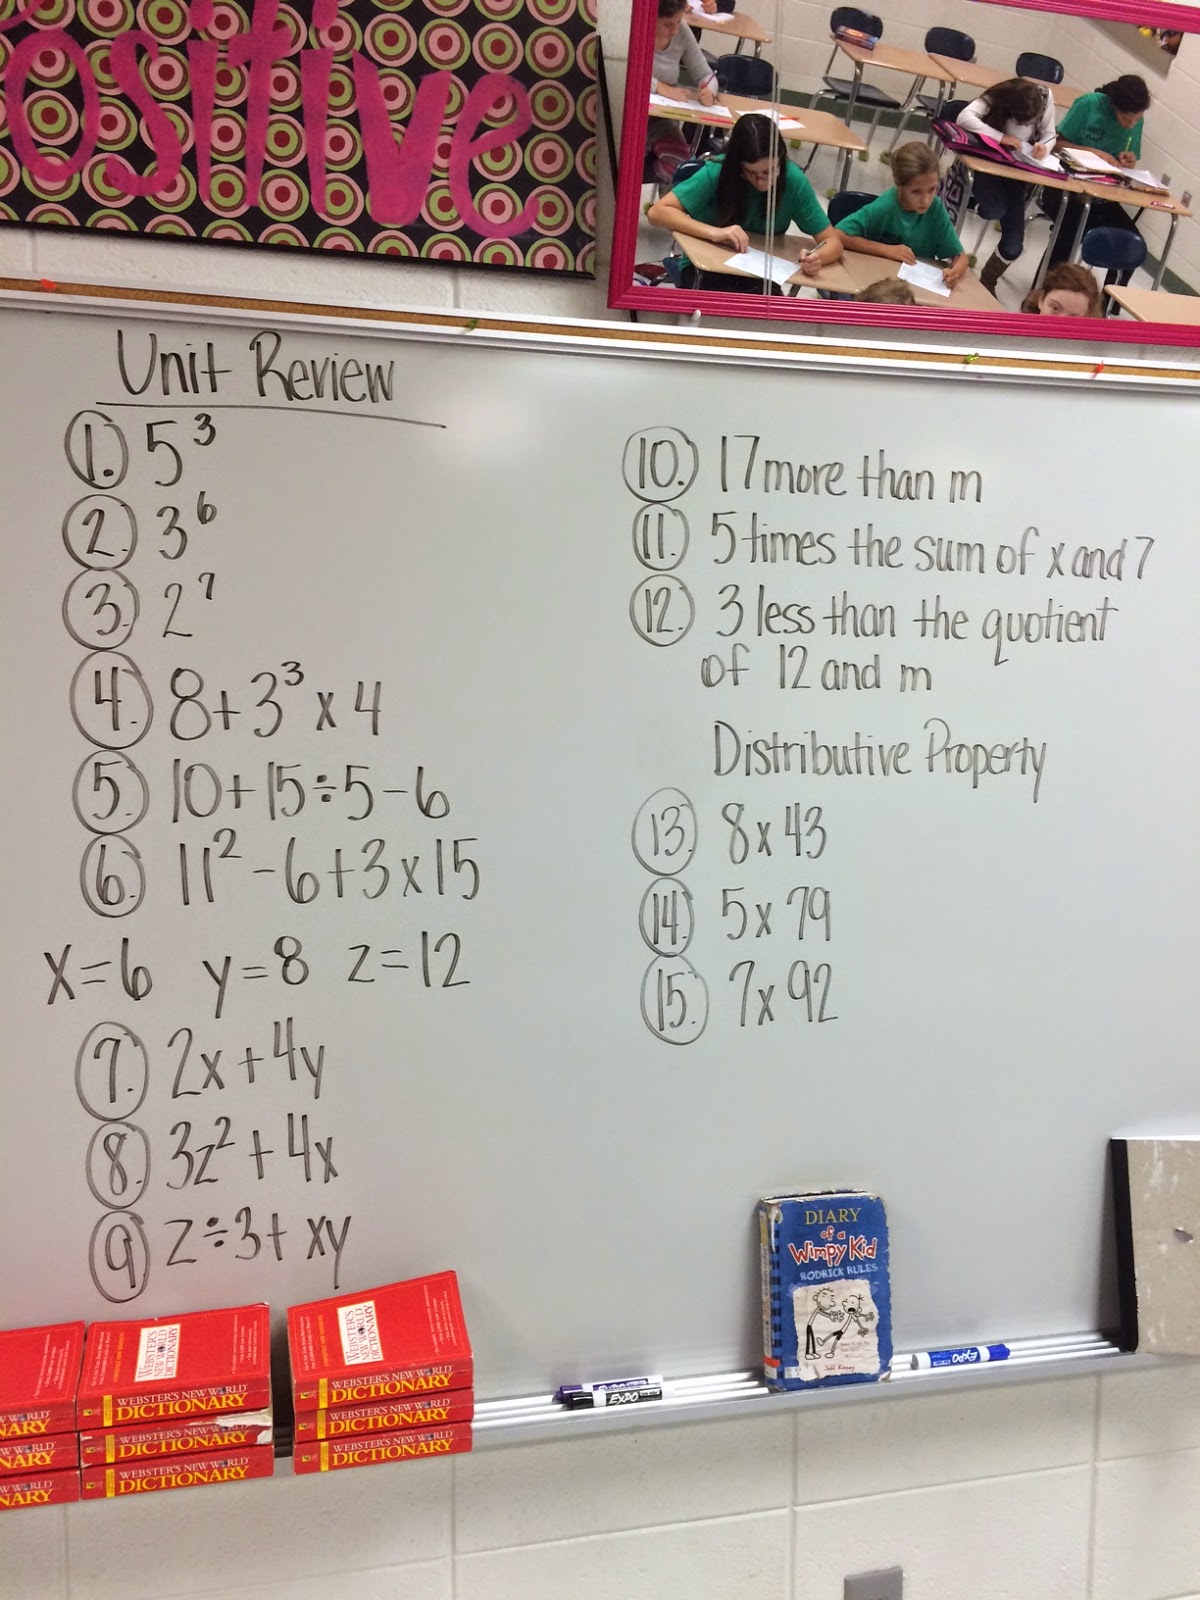 ositive
Unit Review
1. 5³
2. 3⁶
3. 2⁷
4. 8+3³x4
5. 10+15÷5-6
6. 11²-6+3x15
x=6 y=8 z=12
7. 2x+4y
8. 3z²+4x
9. z÷3+xy
10. 17 more than m
11. 5 times the sum of x and 7
12. 3 less than the quotient
of 12 and m
Distributive Property
13. 8x43
14. 5x79
15. 7x92
DIARY
of a
Wimpy Kid
RODRICK RULES
Jeff Kinney
EXPO
EXPO
WEBSTER'S
NEW WORLD
DICTIONARY
WEBSTER'S NEW WORLD
DICTIONARY
WEBSTER'S NEW WORLD
DICTIONARY
WEBSTER'S NEW WORLD
DICTIONARY
WEBSTER'S
NEW WORLD
DICTIONARY
WEBSTER'S NEW WORLD
DICTIONARY
WEBSTER'S NEW WORLD
DICTIONARY
WEBSTER'S NEW WORLD
DICTIONARY
NEW WORLD
NARY
NEW WORLD
NARY
NEW WORLD
NARY